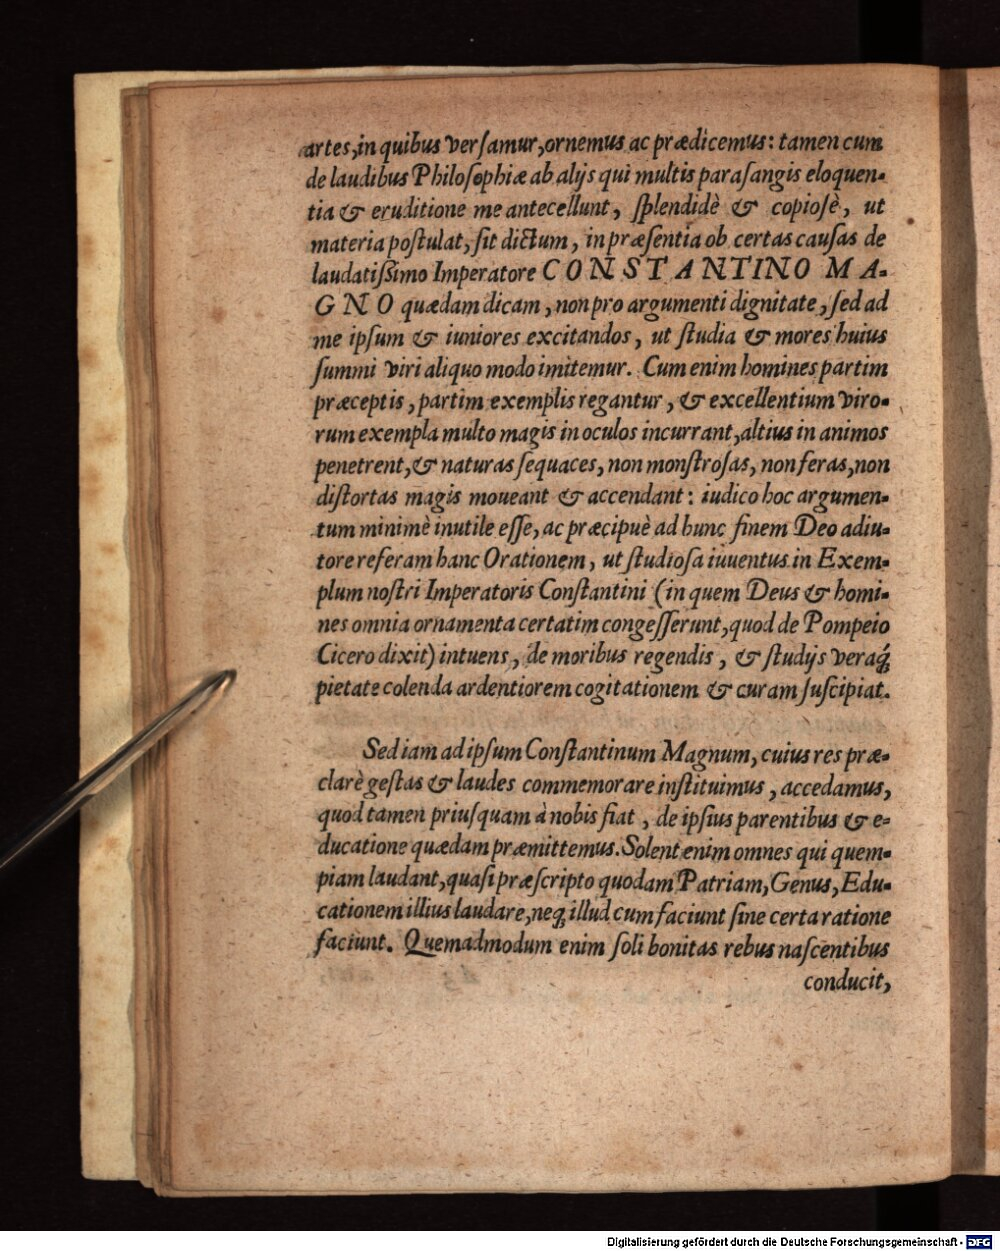 artes, in quibus verſamur, ornemus ac prædicemus: tamen cum
de laudibus Philoſophiæ ab alijs qui multis paraſangis eloquen-
tia & eruditione me antecellunt, ſplendidè & copioſè, ut
materia poſtulat, ſit dictum, in præſentia ob certas cauſas de
laudatiſsimo Imperatore CONSTANTINO MA-
GNO quædam dicam, non pro argumenti dignitate, ſed ad
me ipſum & iuniores excitandos, ut ſtudia & mores huius
ſummi viri aliquo modo imitemur. Cum enim homines partim
præceptis, partim exemplis regantur, & excellentium viro-
rum exempla multo magis in oculos incurrant, altius in animos
penetrent, & naturas ſequaces, non monſtroſas, non feras, non
diſtortas magis moueant & accendant: iudico hoc argumen-
tum minimè inutile eſſe, ac præcipuè ad hunc finem Deo adiu-
tore referam hanc Orationem, ut ſtudioſa iuuentus in Exem-
plum noſtri Imperatoris Conſtantini (in quem Deus & homi-
nes omnia ornamenta certatim congeſſerunt, quod de Pompeio
Cicero dixit) intuens, de moribus regendis, & ſtudijs veraq́;
pietate colenda ardentiorem cogitationem & curam ſuſcipiat.
Sed iam ad ipſum Conſtantinum Magnum, cuius res præ-
clarè geſtas & laudes commemorare inſtituimus, accedamus,
quod tamen priuſquam à nobis fiat, de ipſius parentibus & e-
ducatione quædam præmittemus. Solent enim omnes qui quem-
piam laudant, quaſi præſcripto quodam Patriam, Genus, Edu-
cationem illius laudare, neq; illud cum faciunt ſine certa ratione
faciunt. Quemadmodum enim ſoli bonitas rebus naſcentibus
conducit,
Digitalisierung gefördert durch die Deutsche Forschungsgemeinschaft - DFG